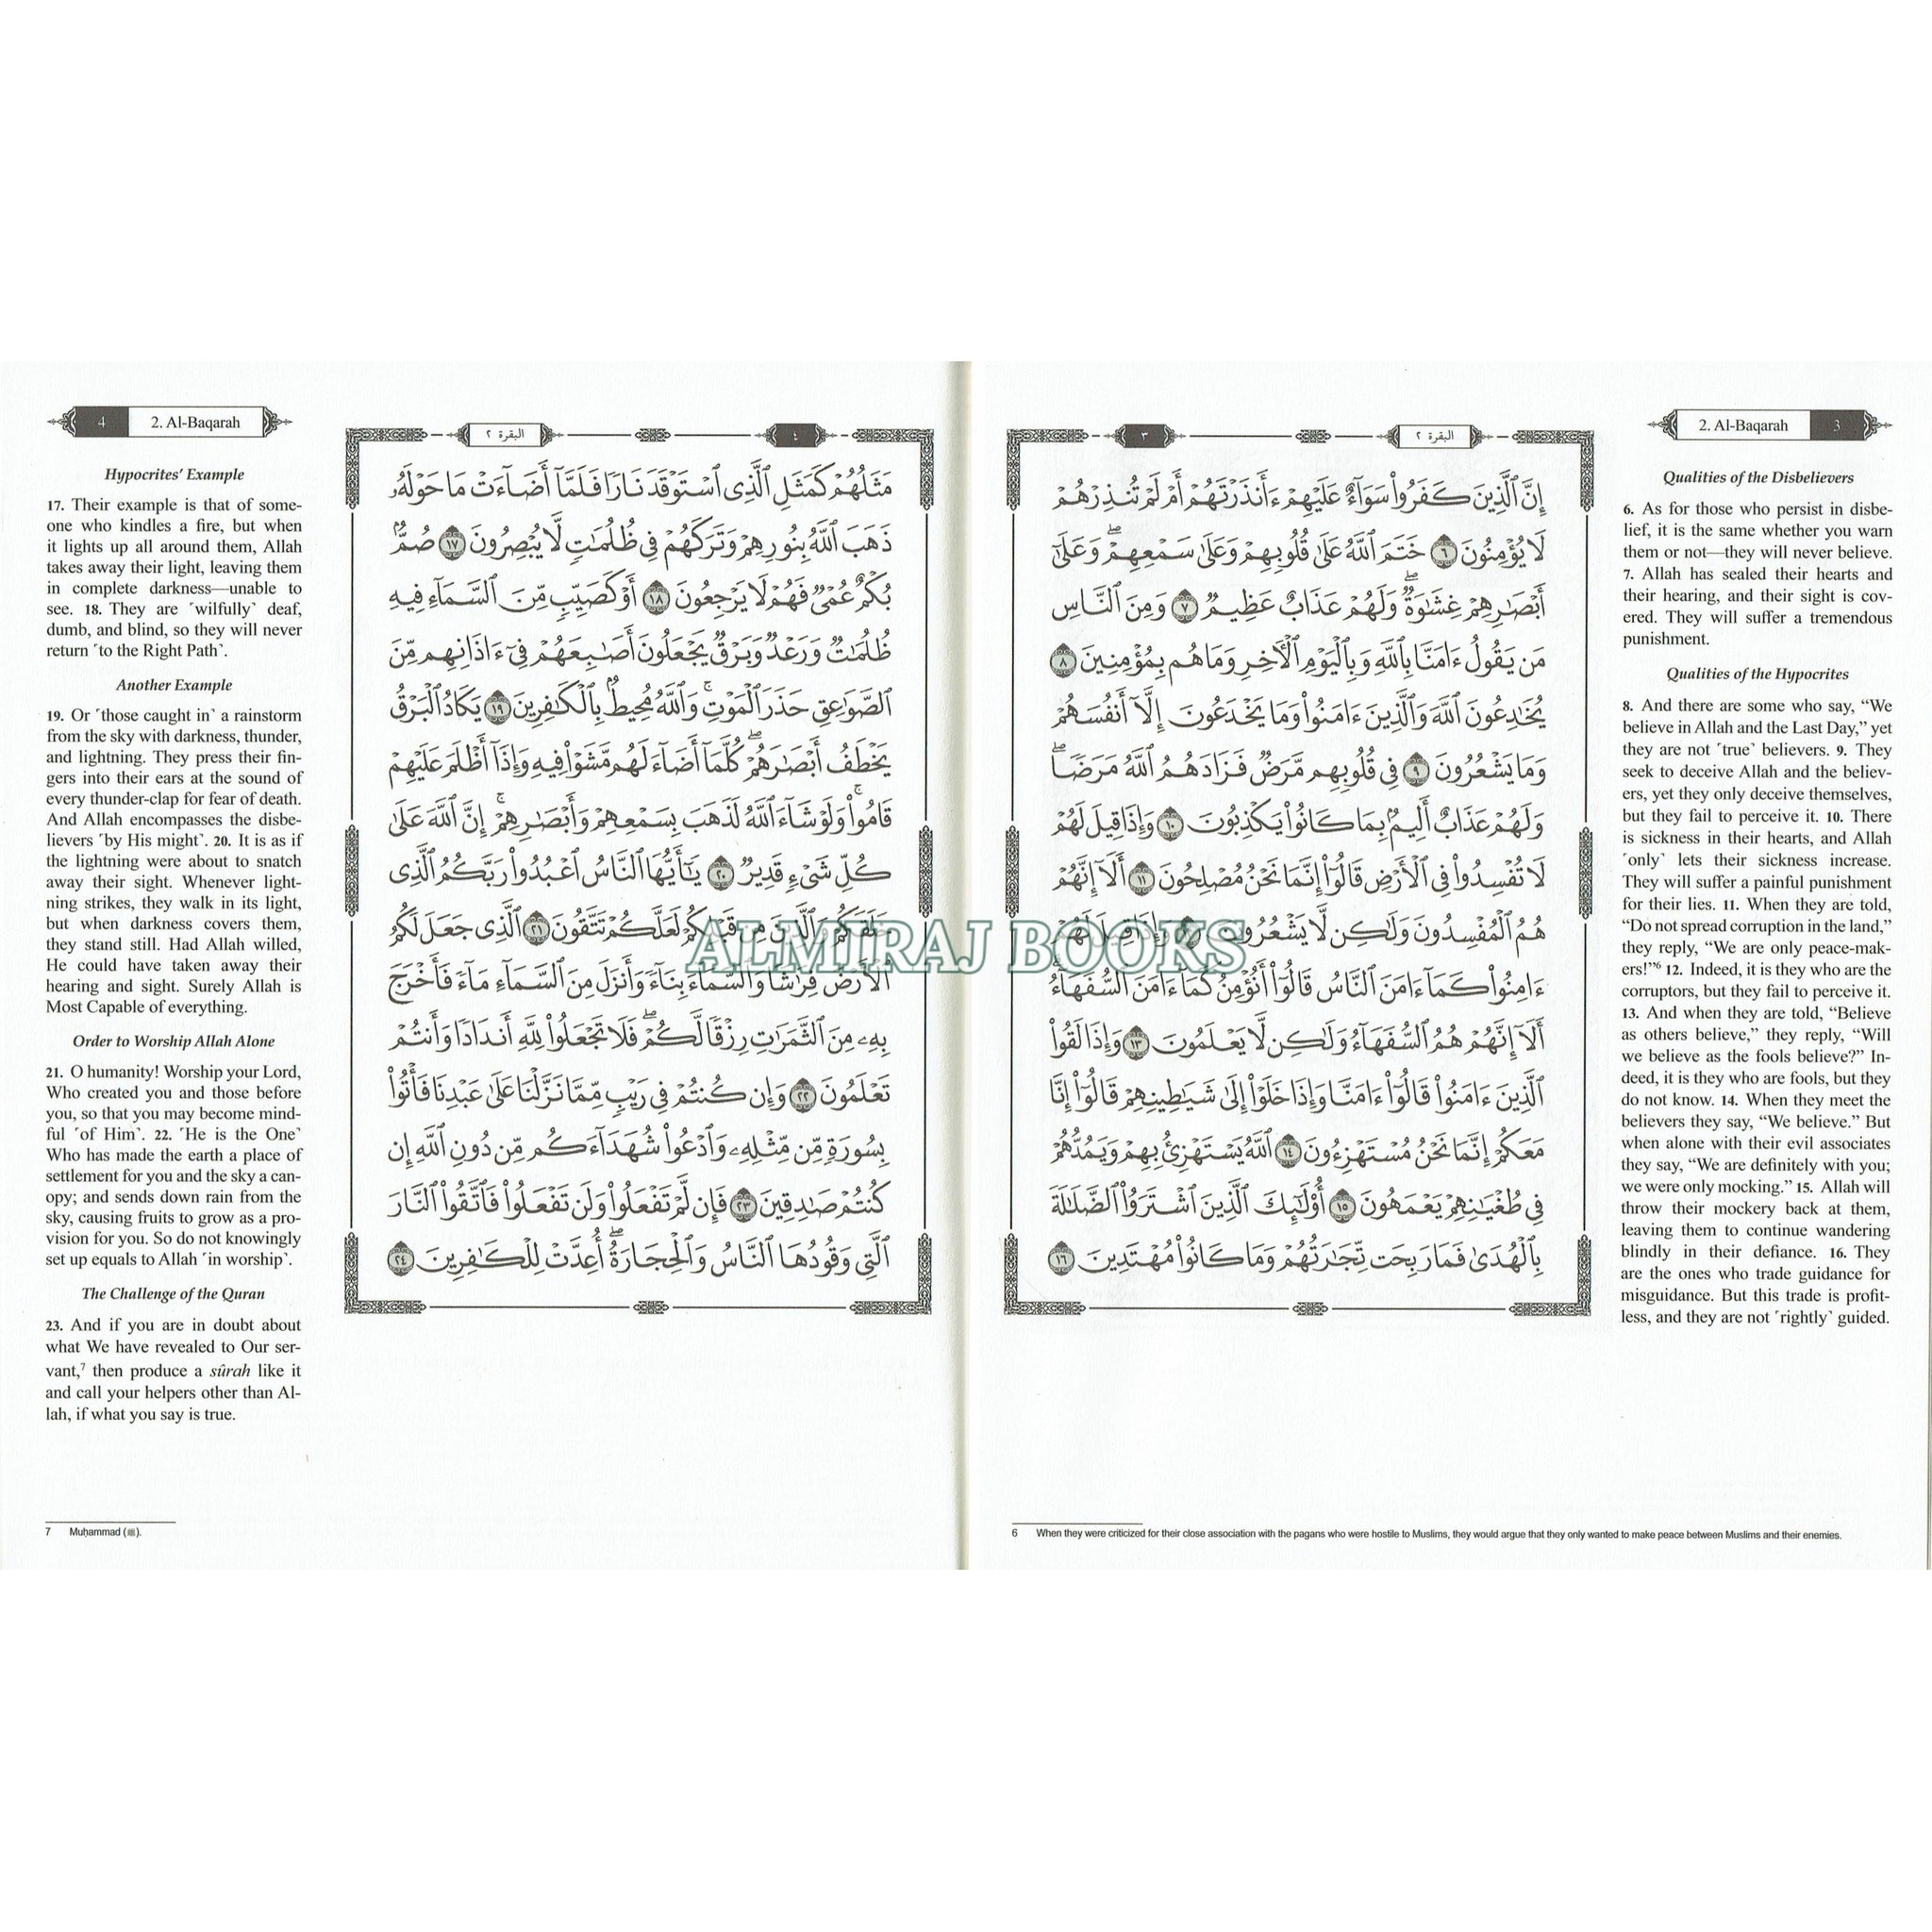 2. Al-Baqarah 3
Qualities of the Disbelievers
6. As for those who persist in disbe-
lief, it is the same whether you warn
them or not—they will never believe.
7. Allah has sealed their hearts and
their hearing, and their sight is cov-
ered. They will suffer a tremendous
punishment.
Qualities of the Hypocrites
8. And there are some who say, “We
believe in Allah and the Last Day,” yet
they are not ˹true˺ believers. 9. They
seek to deceive Allah and the believ-
ers, yet they only deceive themselves,
but they fail to perceive it. 10. There
is sickness in their hearts, and Allah
˹only˺ lets their sickness increase.
They will suffer a painful punishment
for their lies. 11. When they are told,
“Do not spread corruption in the land,”
they reply, “We are only peace-mak-
ers!”6 12. Indeed, it is they who are the
corruptors, but they fail to perceive it.
13. And when they are told, “Believe
as others believe,” they reply, “Will
we believe as the fools believe?” In-
deed, it is they who are fools, but they
do not know. 14. When they meet the
believers they say, “We believe.” But
when alone with their evil associates
they say, “We are definitely with you;
we were only mocking.” 15. Allah will
throw their mockery back at them,
leaving them to continue wandering
blindly in their defiance. 16. They
are the ones who trade guidance for
misguidance. But this trade is profit-
less, and they are not ˹rightly˺ guided.
البقرة ٢ ٣
إِنَّ ٱلَّذِينَ كَفَرُوا۟ سَوَآءٌ عَلَيْهِمْ ءَأَنذَرْتَهُمْ أَمْ لَمْ تُنذِرْهُمْ
لَا يُؤْمِنُونَ ٦ خَتَمَ ٱللَّهُ عَلَىٰ قُلُوبِهِمْ وَعَلَىٰ سَمْعِهِمْ ۖ وَعَلَىٰٓ
أَبْصَـٰرِهِمْ غِشَـٰوَةٌ ۖ وَلَهُمْ عَذَابٌ عَظِيمٌ ٧ وَمِنَ ٱلنَّاسِ
مَن يَقُولُ ءَامَنَّا بِٱللَّهِ وَبِٱلْيَوْمِ ٱلْـَٔاخِرِ وَمَا هُم بِمُؤْمِنِينَ ٨
يُخَـٰدِعُونَ ٱللَّهَ وَٱلَّذِينَ ءَامَنُوا۟ وَمَا يَخْدَعُونَ إِلَّآ أَنفُسَهُمْ
وَمَا يَشْعُرُونَ ٩ فِى قُلُوبِهِم مَّرَضٌ فَزَادَهُمُ ٱللَّهُ مَرَضًا ۖ
وَلَهُمْ عَذَابٌ أَلِيمٌۢ بِمَا كَانُوا۟ يَكْذِبُونَ ١٠ وَإِذَا قِيلَ لَهُمْ
لَا تُفْسِدُوا۟ فِى ٱلْأَرْضِ قَالُوٓا۟ إِنَّمَا نَحْنُ مُصْلِحُونَ ١١ أَلَآ إِنَّهُمْ
هُمُ ٱلْمُفْسِدُونَ وَلَـٰكِن لَّا يَشْعُرُونَ ١٢ وَإِذَا قِيلَ لَهُمْ
ءَامِنُوا۟ كَمَآ ءَامَنَ ٱلنَّاسُ قَالُوٓا۟ أَنُؤْمِنُ كَمَآ ءَامَنَ ٱلسُّفَهَآءُ ۗ
أَلَآ إِنَّهُمْ هُمُ ٱلسُّفَهَآءُ وَلَـٰكِن لَّا يَعْلَمُونَ ١٣ وَإِذَا لَقُوا۟
ٱلَّذِينَ ءَامَنُوا۟ قَالُوٓا۟ ءَامَنَّا وَإِذَا خَلَوْا۟ إِلَىٰ شَيَـٰطِينِهِمْ قَالُوٓا۟ إِنَّا
مَعَكُمْ إِنَّمَا نَحْنُ مُسْتَهْزِءُونَ ١٤ ٱللَّهُ يَسْتَهْزِئُ بِهِمْ وَيَمُدُّهُمْ
فِى طُغْيَـٰنِهِمْ يَعْمَهُونَ ١٥ أُو۟لَـٰٓئِكَ ٱلَّذِينَ ٱشْتَرَوُا۟ ٱلضَّلَـٰلَةَ
بِٱلْهُدَىٰ فَمَا رَبِحَت تِّجَـٰرَتُهُمْ وَمَا كَانُوا۟ مُهْتَدِينَ ١٦
6 When they were criticized for their close association with the pagans who were hostile to Muslims, they would argue that they only wanted to make peace between Muslims and their enemies.
٤ البقرة ٢
مَثَلُهُمْ كَمَثَلِ ٱلَّذِى ٱسْتَوْقَدَ نَارًا فَلَمَّآ أَضَآءَتْ مَا حَوْلَهُۥ
ذَهَبَ ٱللَّهُ بِنُورِهِمْ وَتَرَكَهُمْ فِى ظُلُمَـٰتٍ لَّا يُبْصِرُونَ ١٧ صُمٌّۢ
بُكْمٌ عُمْىٌ فَهُمْ لَا يَرْجِعُونَ ١٨ أَوْ كَصَيِّبٍ مِّنَ ٱلسَّمَآءِ فِيهِ
ظُلُمَـٰتٌ وَرَعْدٌ وَبَرْقٌ يَجْعَلُونَ أَصَـٰبِعَهُمْ فِىٓ ءَاذَانِهِم مِّنَ
ٱلصَّوَٰعِقِ حَذَرَ ٱلْمَوْتِ ۚ وَٱللَّهُ مُحِيطٌۢ بِٱلْكَـٰفِرِينَ ١٩ يَكَادُ ٱلْبَرْقُ
يَخْطَفُ أَبْصَـٰرَهُمْ ۖ كُلَّمَآ أَضَآءَ لَهُم مَّشَوْا۟ فِيهِ وَإِذَآ أَظْلَمَ عَلَيْهِمْ
قَامُوا۟ ۚ وَلَوْ شَآءَ ٱللَّهُ لَذَهَبَ بِسَمْعِهِمْ وَأَبْصَـٰرِهِمْ ۚ إِنَّ ٱللَّهَ عَلَىٰ
كُلِّ شَىْءٍ قَدِيرٌ ٢٠ يَـٰٓأَيُّهَا ٱلنَّاسُ ٱعْبُدُوا۟ رَبَّكُمُ ٱلَّذِى
خَلَقَكُمْ وَٱلَّذِينَ مِن قَبْلِكُمْ لَعَلَّكُمْ تَتَّقُونَ ٢١ ٱلَّذِى جَعَلَ لَكُمُ
ٱلْأَرْضَ فِرَٰشًا وَٱلسَّمَآءَ بِنَآءً وَأَنزَلَ مِنَ ٱلسَّمَآءِ مَآءً فَأَخْرَجَ
بِهِۦ مِنَ ٱلثَّمَرَٰتِ رِزْقًا لَّكُمْ ۖ فَلَا تَجْعَلُوا۟ لِلَّهِ أَندَادًا وَأَنتُمْ
تَعْلَمُونَ ٢٢ وَإِن كُنتُمْ فِى رَيْبٍ مِّمَّا نَزَّلْنَا عَلَىٰ عَبْدِنَا فَأْتُوا۟
بِسُورَةٍ مِّن مِّثْلِهِۦ وَٱدْعُوا۟ شُهَدَآءَكُم مِّن دُونِ ٱللَّهِ إِن
كُنتُمْ صَـٰدِقِينَ ٢٣ فَإِن لَّمْ تَفْعَلُوا۟ وَلَن تَفْعَلُوا۟ فَٱتَّقُوا۟ ٱلنَّارَ
ٱلَّتِى وَقُودُهَا ٱلنَّاسُ وَٱلْحِجَارَةُ ۖ أُعِدَّتْ لِلْكَـٰفِرِينَ ٢٤
4 2. Al-Baqarah
Hypocrites’ Example
17. Their example is that of some-
one who kindles a fire, but when
it lights up all around them, Allah
takes away their light, leaving them
in complete darkness—unable to
see. 18. They are ˹wilfully˺ deaf,
dumb, and blind, so they will never
return ˹to the Right Path˺.
Another Example
19. Or ˹those caught in˺ a rainstorm
from the sky with darkness, thunder,
and lightning. They press their fin-
gers into their ears at the sound of
every thunder-clap for fear of death.
And Allah encompasses the disbe-
lievers ˹by His might˺. 20. It is as if
the lightning were about to snatch
away their sight. Whenever light-
ning strikes, they walk in its light,
but when darkness covers them,
they stand still. Had Allah willed,
He could have taken away their
hearing and sight. Surely Allah is
Most Capable of everything.
Order to Worship Allah Alone
21. O humanity! Worship your Lord,
Who created you and those before
you, so that you may become mind-
ful ˹of Him˺. 22. ˹He is the One˺
Who has made the earth a place of
settlement for you and the sky a can-
opy; and sends down rain from the
sky, causing fruits to grow as a pro-
vision for you. So do not knowingly
set up equals to Allah ˹in worship˺.
The Challenge of the Quran
23. And if you are in doubt about
what We have revealed to Our ser-
vant,7 then produce a sûrah like it
and call your helpers other than Al-
lah, if what you say is true.
7 Muḥammad (ﷺ).
ALMIRAJ BOOKS